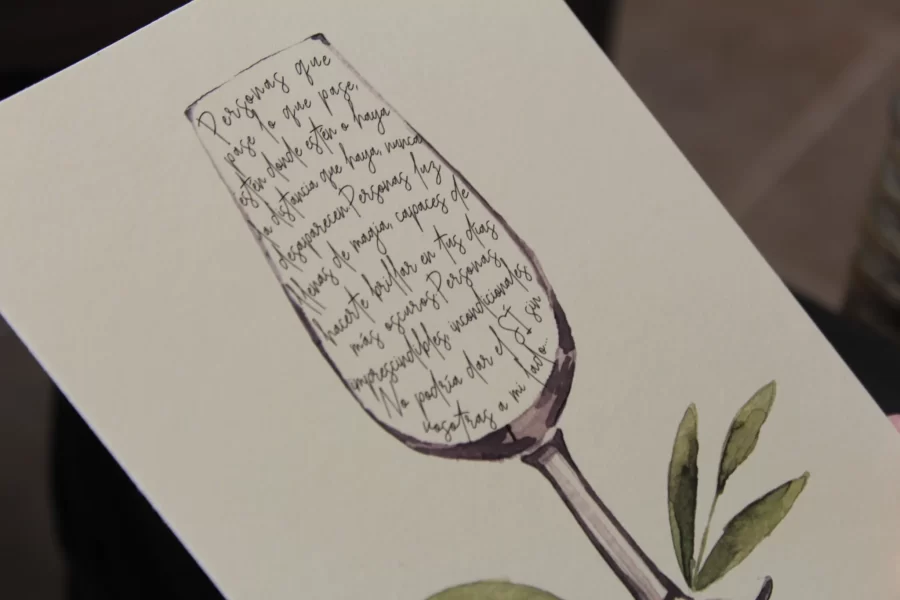 Personas que
pase lo que pase,
estén donde estén o haya
la distancia que haya, nunca
desaparecen Personas luz
llenas de magia, capaces de
hacerte brillar en tus días
más oscuros Personas
imprescindibles incondicionales
No podría dar el SÍ sin
vosotras a mi lado.